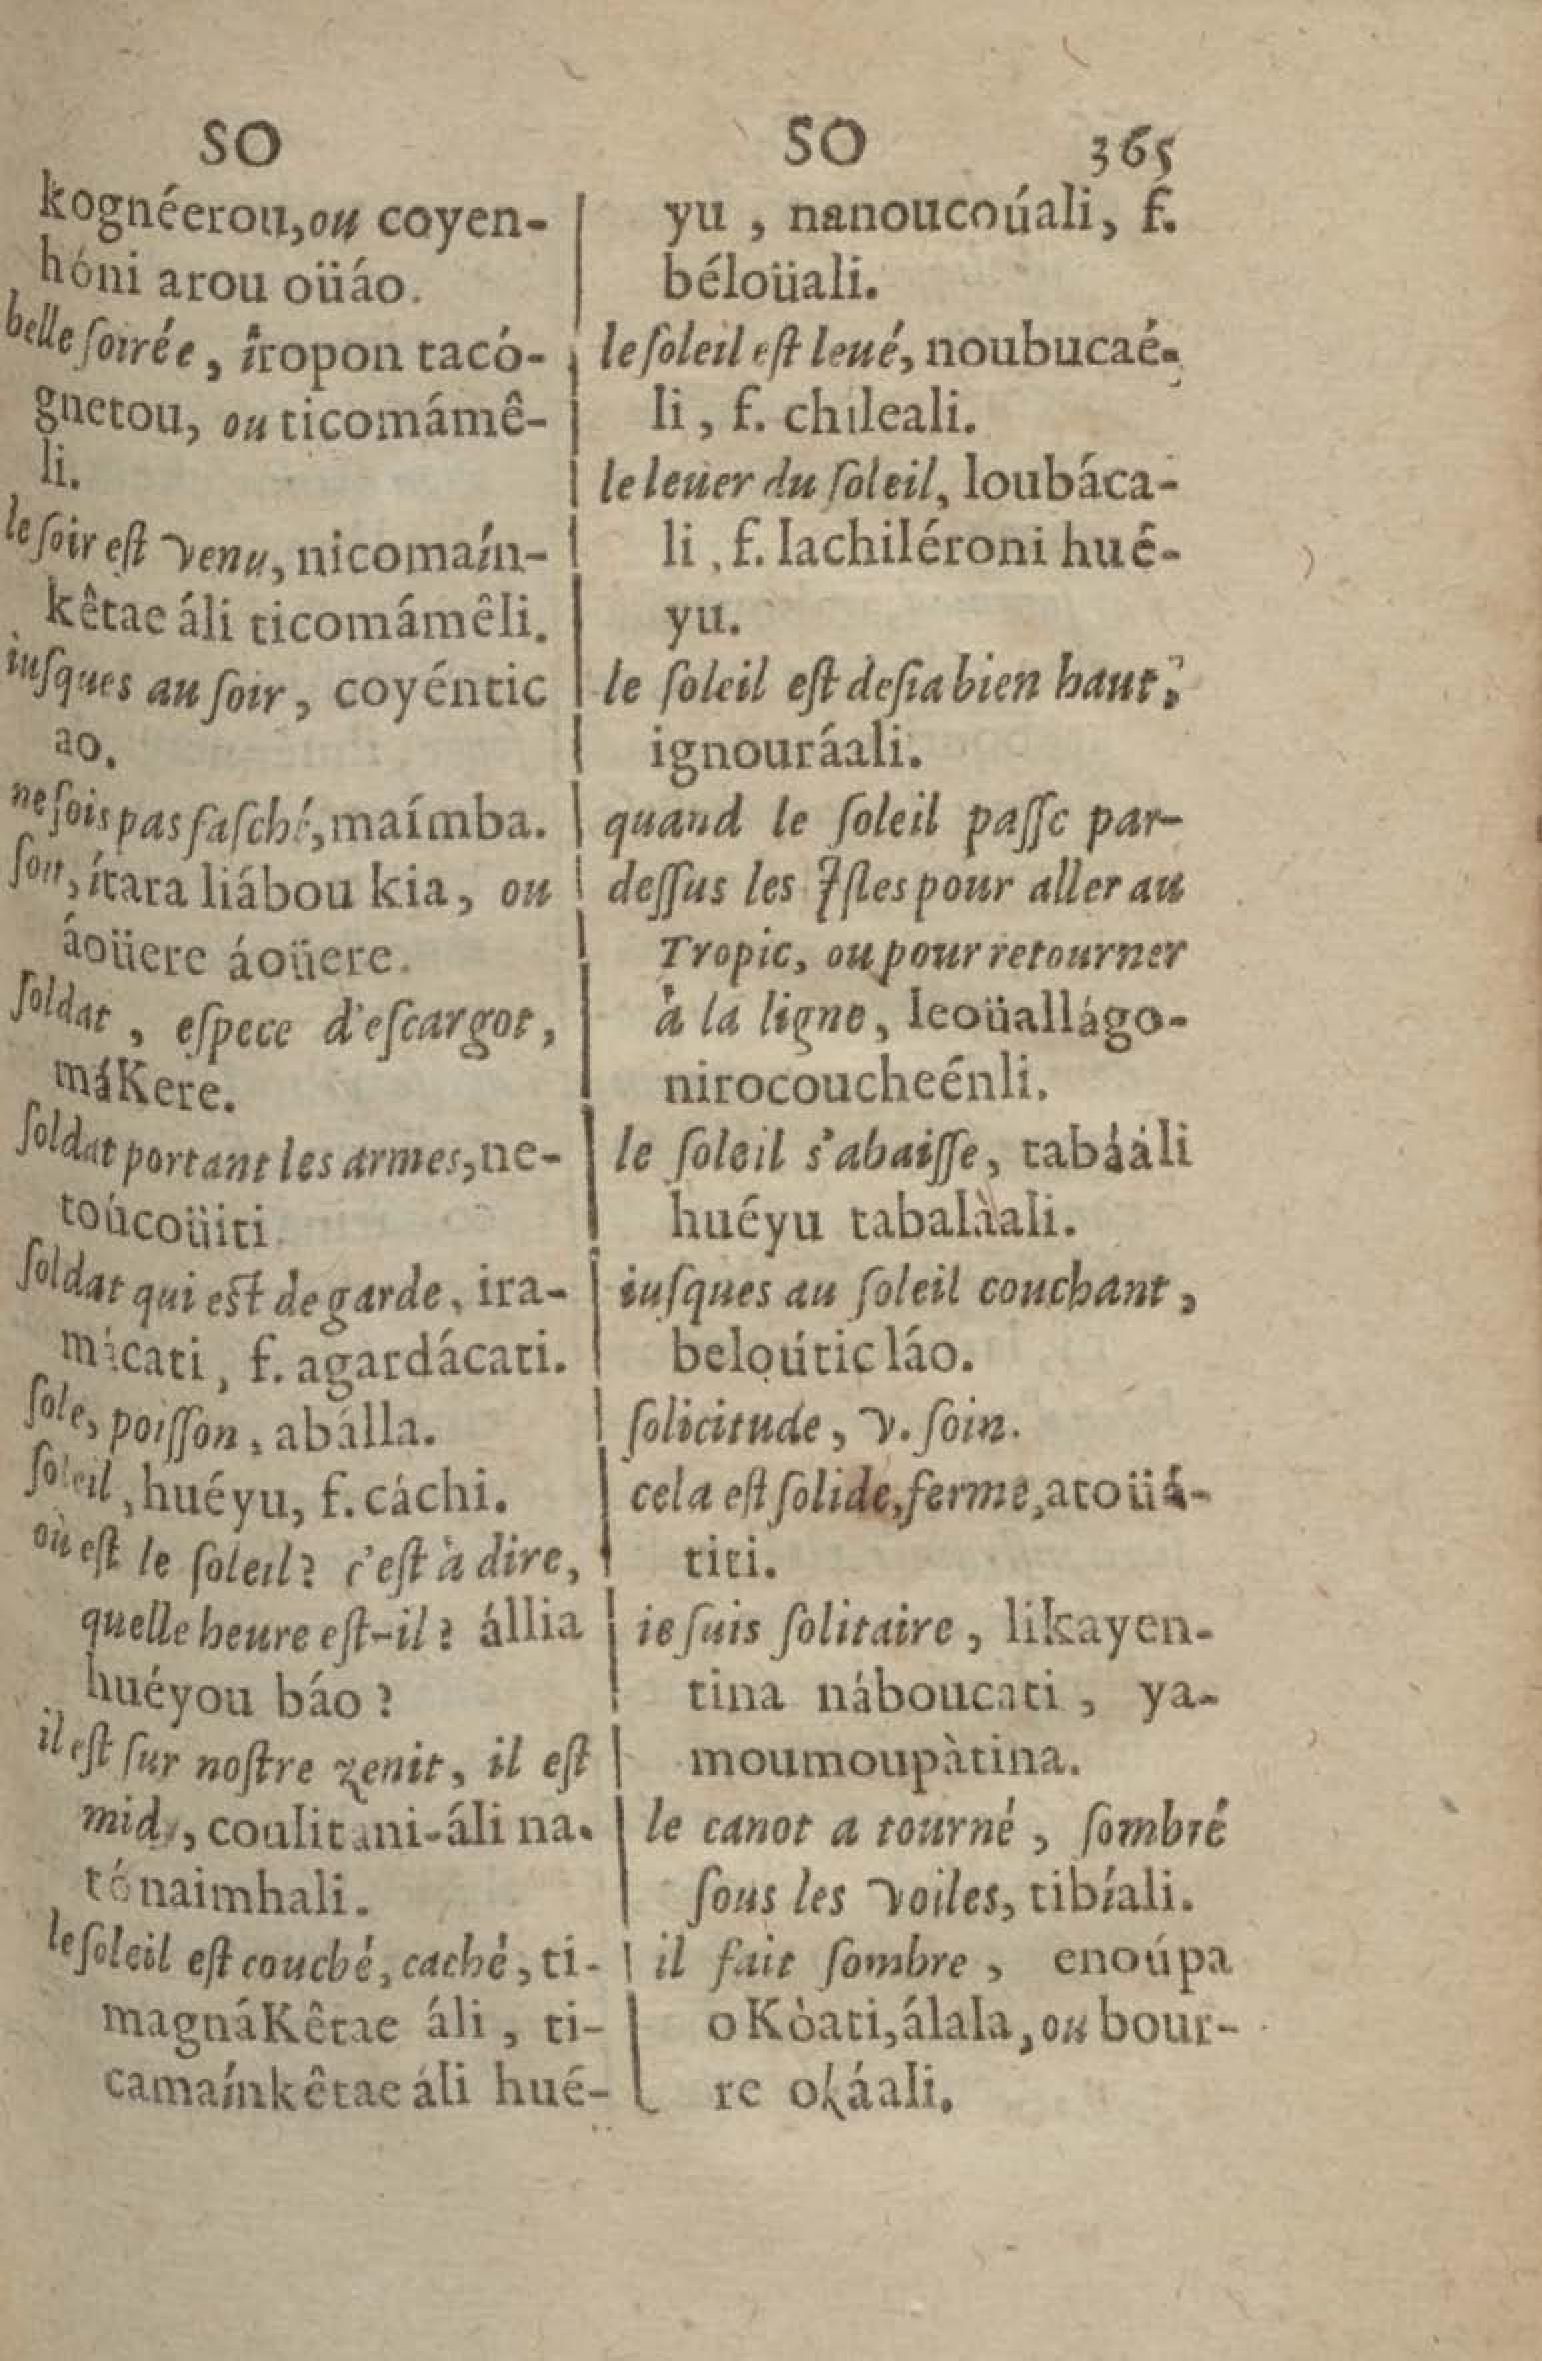 SO
kognéerou, ou coyen-
hóni arou oüáo.
belle ſoirée, iropon tacó-
gnetou, ou ticomámê-
li.
le ſoir eſt venu, nicomaín-
kêtae áli ticomámêli.
iuſques au ſoir, coyéntic
ao.
ne ſois pas faſché, maímba.
ſoit, ítara liábou kia, ou
áoüere áoüere.
ſoldat, eſpece d'eſcargot,
máKere.
ſoldat portant les armes, ne-
toúcoüiti.
ſoldat qui eſt de garde, ira-
mácati, f. agardácati.
ſole, poiſſon, abálla.
ſoleil, huéyu, f. cáchi.
où eſt le ſoleil? c'eſt à dire,
quelle heure eſt-il? állia
huéyou báo?
il eſt ſur noſtre zenit, il eſt
midy, coulitani-áli na-
tónaimhali.
le ſoleil eſt couché, caché, ti-
magnáKêtae áli, ti-
camaínkêtae áli hué-
SO 365
yu, nanoucoúali, f.
béloüali.
le ſoleil eſt leué, noubucaé-
li, f. chileali.
le leuer du ſoleil, loubáca-
li, f. lachiléroni hué-
yu.
le ſoleil eſt deſia bien haut,
ignouráali.
quand le ſoleil paſſe par-
deſſus les Iſles pour aller au
Tropic, ou pour retourner
à la ligne, leoüallágo-
nirocoucheénli.
le ſoleil s'abaiſſe, tabááli
huéyu tabalàali.
iuſques au ſoleil couchant,
beloútic láo.
ſolicitude, v. ſoin.
cela eſt ſolide, ferme, atoüá-
titi.
ie ſuis ſolitaire, likayen-
tina náboucati, ya-
moumoupàtina.
le canot a tourné, ſombré
ſous les voiles, tibíali.
il fait ſombre, enoúpa
oKòati, álala, ou bour-
re okáali.